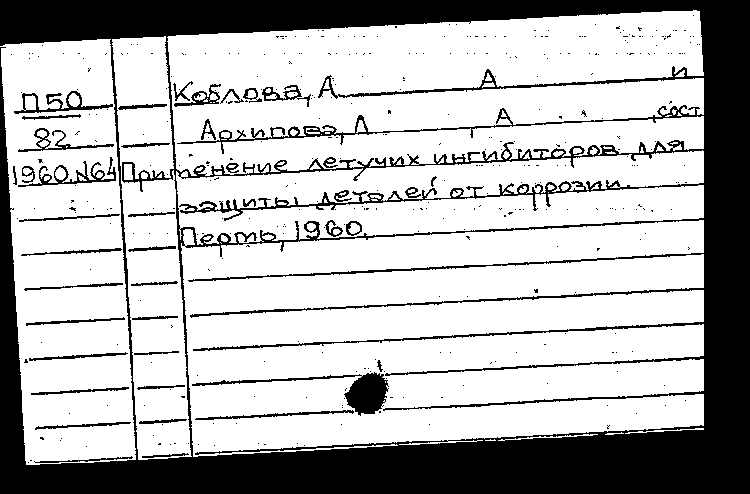 П50 Коблова, А А и
82 Архипова, Л , А ,сост
1960.N64 Применение летучих ингибиторов для
защиты деталей от коррозии.
Пермь, 1960.